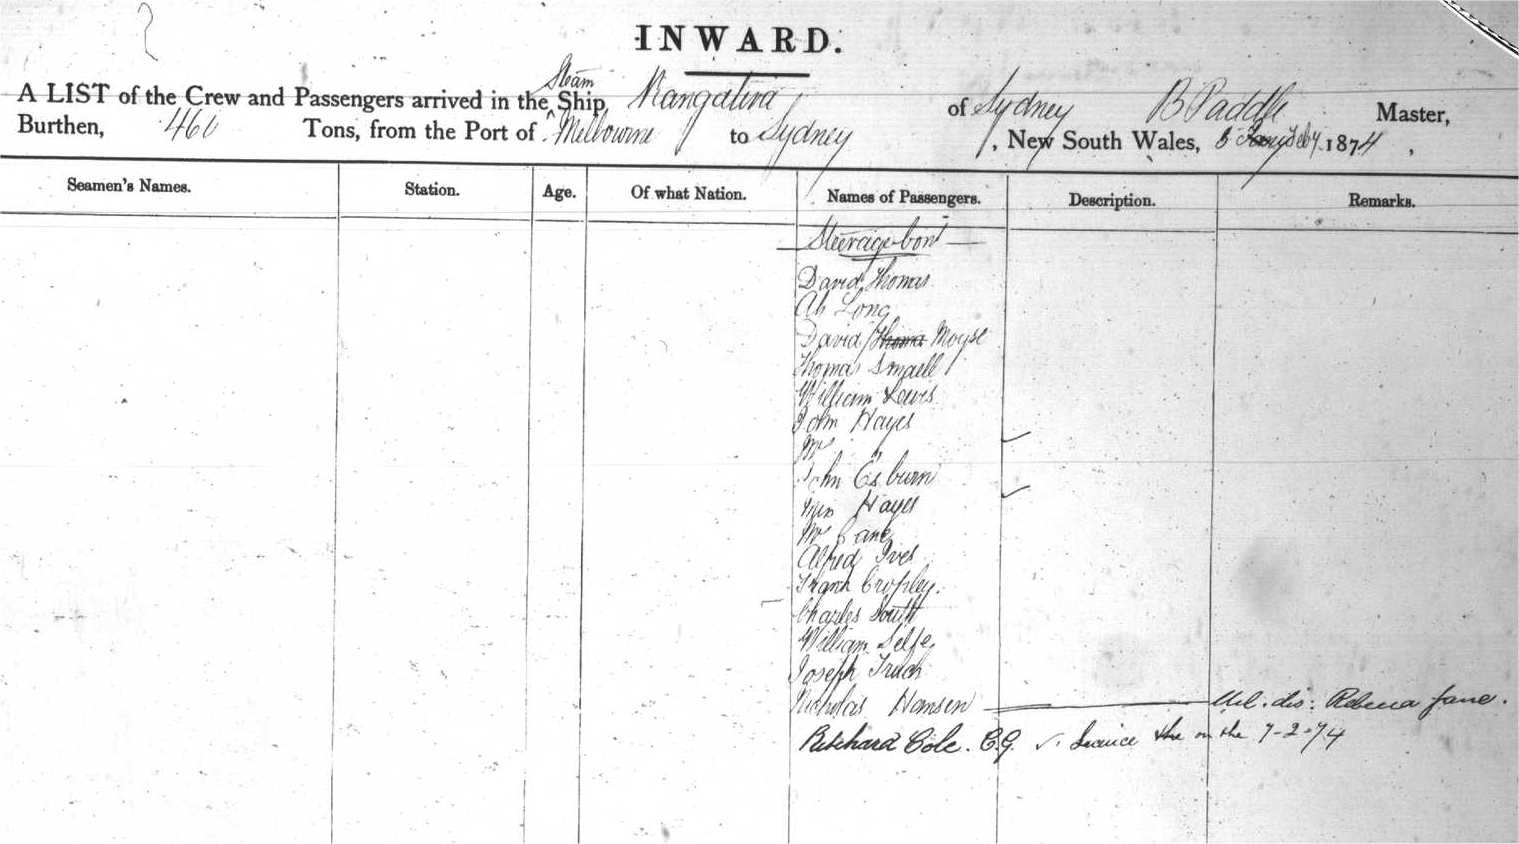 INWARD.
A LIST of the Crew and Passengers arrived in the Steam Ship Rangatira of Sydney B Paddle Master,
Burthen, 460 Tons, from the Port of Melbourne to Sydney, New South Wales, 5 Feby 1874,
Seamen's Names. Station. Age. Of what Nation. Names of Passengers. Description. Remarks.
Steerage cont
David Thomas
Ah Long
David Thomas Moyse
Thomas Smaell
William Lewis
John Hayes
Mrs "
John Esburn
Mrs Hayes
Mr Cane
Alfred Ives
Frank Cropley.
Charles South
William Selfe
Joseph
Nicholas Hansen dis: Rebecca Jane.
Pritchard Cole. C.G. on the 7-2-74